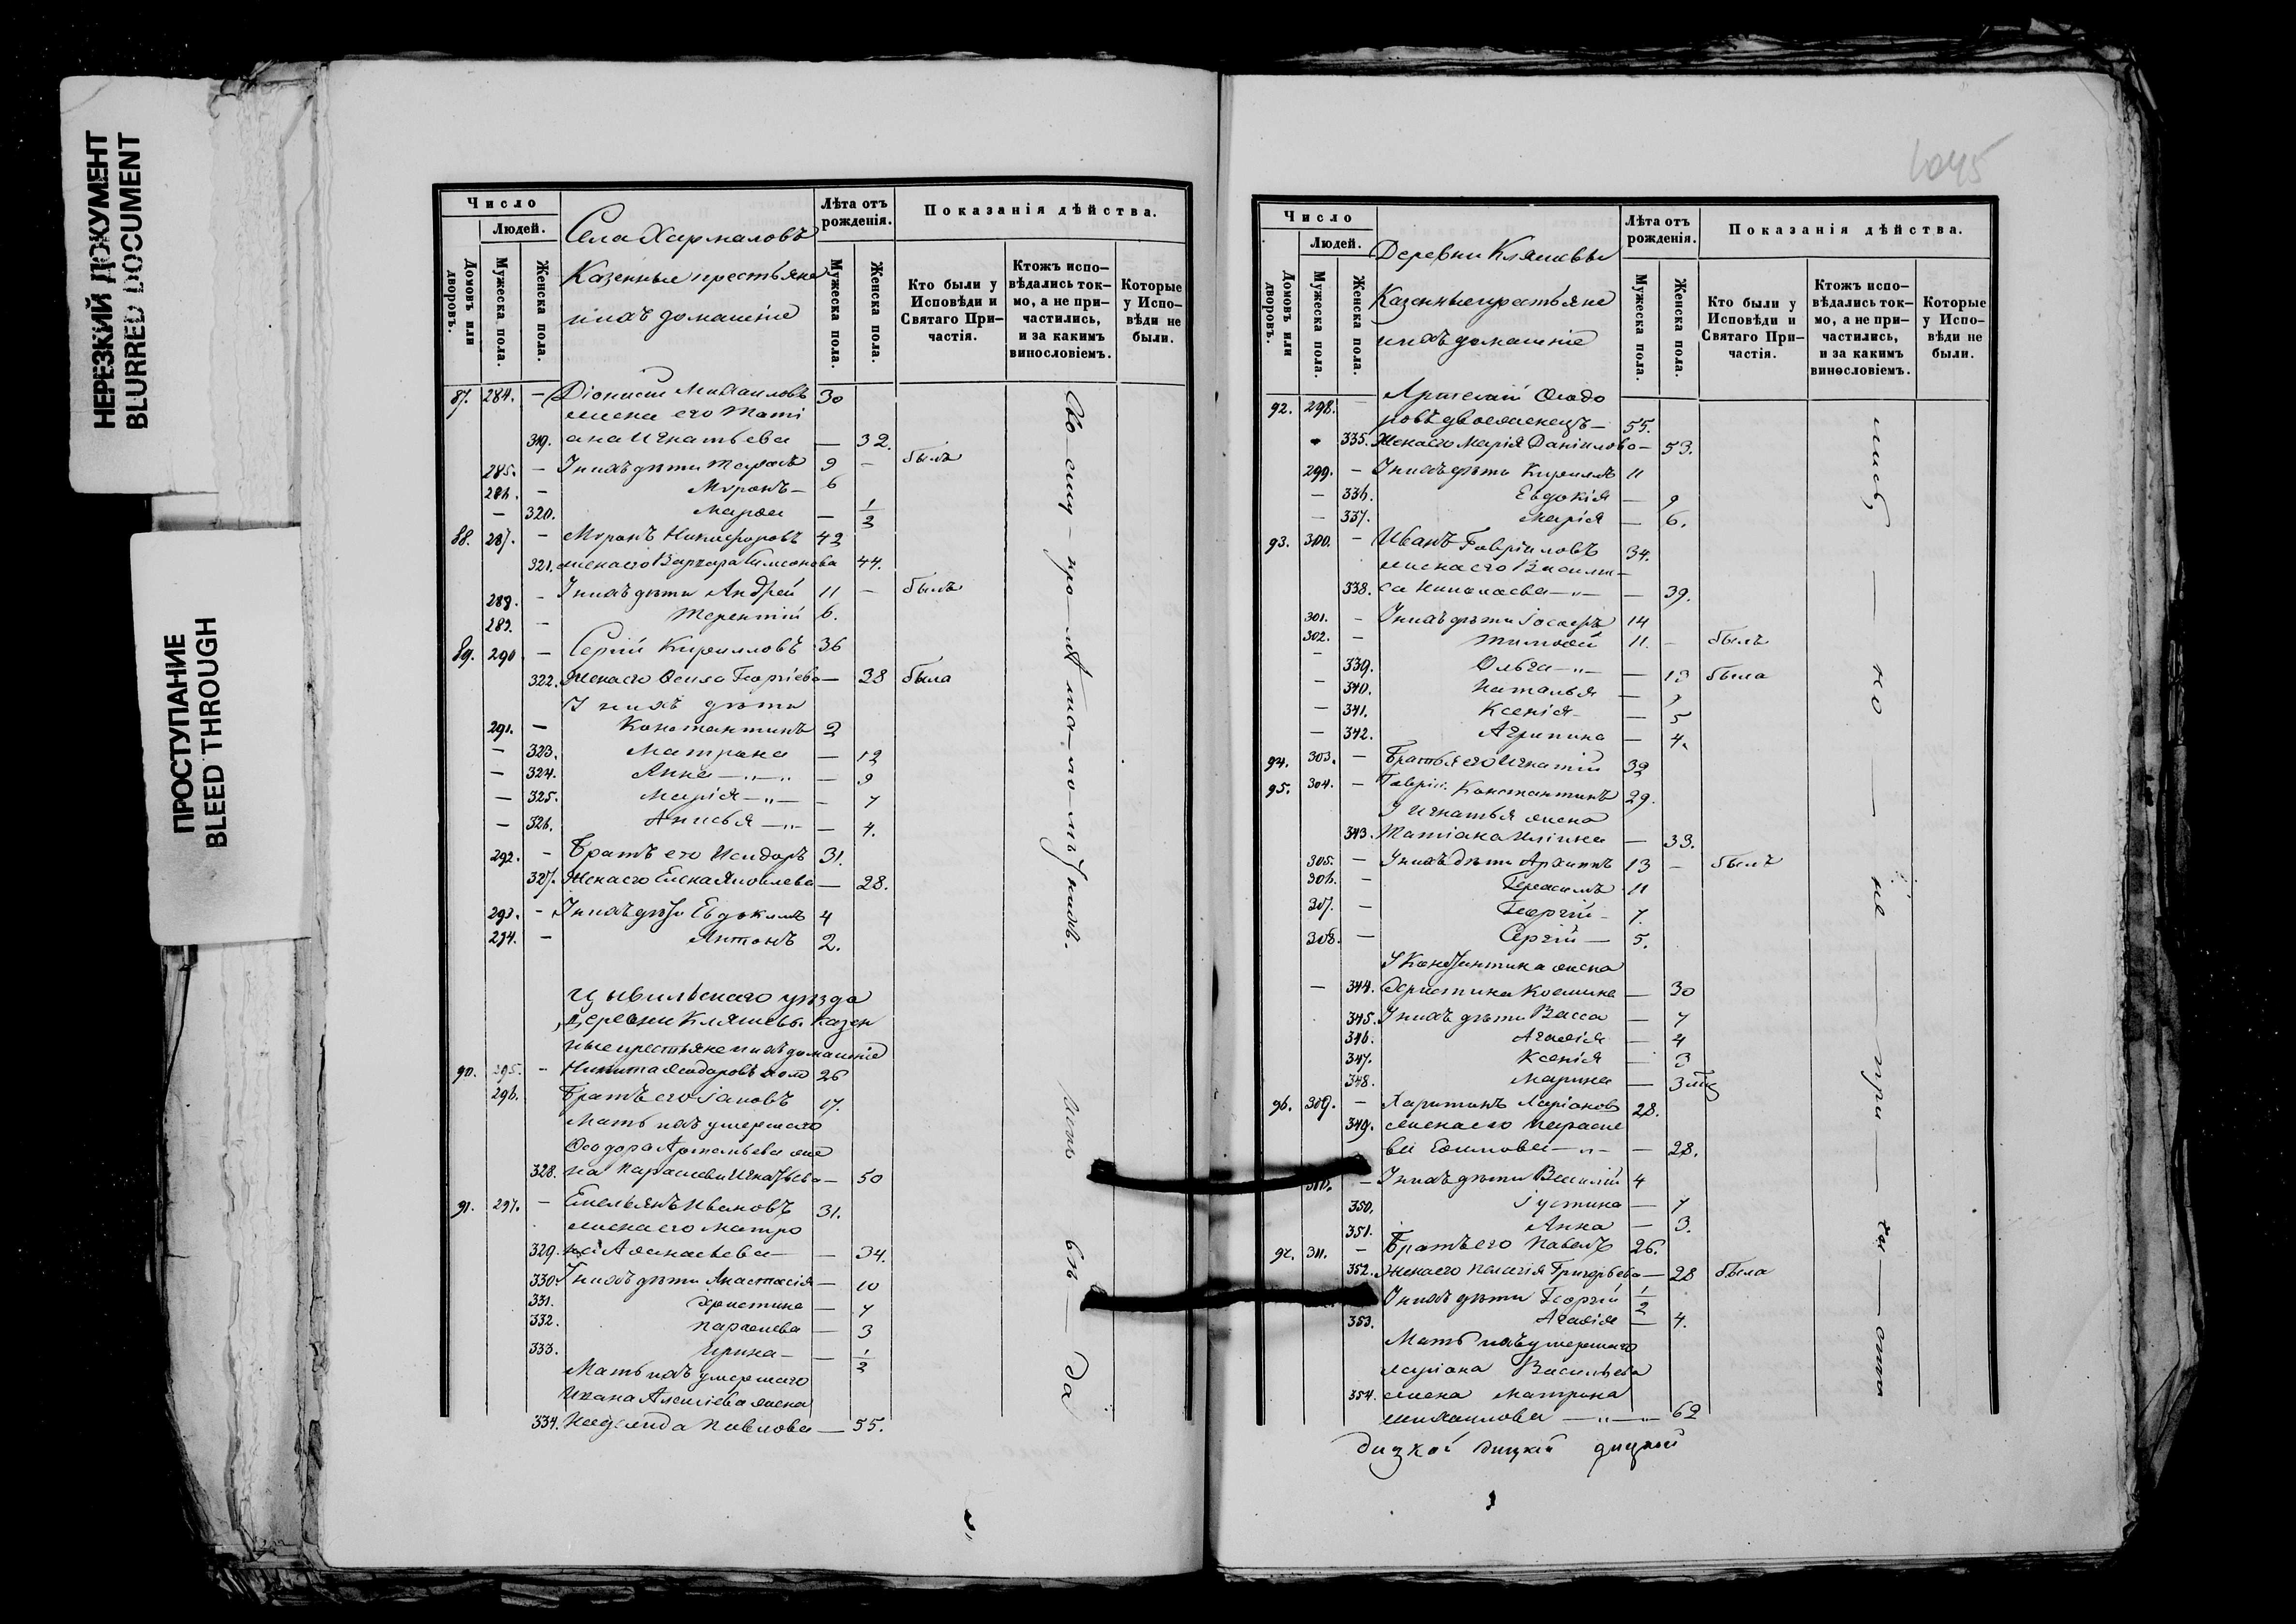 НЕРЕЗКИЙ ДОКУМЕНТ
BLURRED DOCUMENT
ПРОСТУПАНИЕ
BLEED THROUGH
Число
Людей.
Домовъ или дворовъ.
Мужеска пола.
Женска пола.
Села Хармаловъ
Казенные крестьяне
и ихъ домашніе
Лѣта отъ рожденія.
Мужеска пола.
Женска пола.
Показанія дѣйства.
Кто были у Исповѣди и Святаго При-частія.
Ктожъ испо-вѣдались ток-мо, а не при-частились, и за какимъ винословіемъ.
Которые у Испо-вѣди не были.
87. 284. – Діонисій Михаиловъ 30
жена его Тати
319. ана Игнатьева — 32.
285. – У нихъ дѣти Тарахъ 9 – былъ
286. – Миронъ – 6
– 320. Марѳа — 1/2
88. 287. – Миронъ Никифоровъ 42
321. жена его Варвара Симеонова 44.
288. – У нихъ дѣти Андрей 11 – былъ
289. – Терентій 6.
89. 290 – Сергій Кирилловъ 36
322. Жена его Георгіева — 38 была
У нихъ дѣти
291. – Константинъ 2
– 323. Матрона — 12
– 324. Анна — 9
– 325. Марія — 7
– 326. Анисья — 4.
292. – Братъ его Исидоръ 31.
327. Жена его Елена Яковлева — 28.
293. – У нихъ дѣти Евдокимъ 4
294. – Антонъ 2.
Цывильскаго уѣзда
Деревни Кляшевы Казен
ные крестьяне и ихъ домашніе
90. 295. – Никита Ѳеодоровъ 26
296. Братъ его Іаковъ 17.
Мать ихъ умершаго
Ѳеодора Артемьева же
328. на Параскева Игнатьева — 50
91. 297. – Емельянъ Ивановъ 31.
жена его Матро
329. на Аѳанасьева — 34.
330. У нихъ дѣти Анастасія — 10
331. Христина — 7
332. Параскева — 3
333. Ирина — 1/2
Мать ихъ умершаго
Ивана Алексіева жена
334. Надежда Павлова — 55.
1045
Число
Людей.
Домовъ или дворовъ.
Мужеска пола.
Женска пола.
Деревни Кляшевы
Казенные крестьяне
и ихъ домашніе
Лѣта отъ рожденія.
Мужеска пола.
Женска пола.
Показанія дѣйства.
Кто были у Исповѣди и Святаго При-частія.
Ктожъ испо-вѣдались ток-мо, а не при-частились, и за какимъ винословіемъ.
Которые у Испо-вѣди не были.
92. 298. – Ѳеодо
ровъ двоеженецъ — 55.
335. Жена его Марія Даніилова — 53.
299. – У нихъ дѣти Кириллъ 11
– 336. Евдокія — 9
– 337. Марія — 6.
93. 300. – Иванъ Гавріиловъ 34.
жена его Васили
338. са Николаева — 39.
301. – У нихъ дѣти Іосифъ 14
302. – Тимоѳей 11. – былъ
– 339. Ольга — 13 была
– 340. Наталья —
– 341. Ксенія — 5
– 342. Агрипина — 4.
94. 303. – Братья его Игнатій 32
95. 304. – Гаврііл. Константинъ 29.
У Игнатья жена
343. Татіана Ильина — 33.
305. – У нихъ дѣти Архиппъ 13 – былъ
306. – Герасимъ 11
307. – Георгій – 7.
308. – Сергій — 5.
У Константина жена
– 344. Христина Козмина — 30
345. У нихъ дѣти Васса — 7
346. Агаѳія — 4
347. Ксенія — 3
348. Марина — 3 мѣс
96. 309. – Харитонъ Ларіоновъ 28.
349. жена его Параске
ва Ефимова — 28.
310. – У нихъ дѣти Василій 4
350. Іустина — 7
351. Анна — 3.
97. 311. – Братъ его Павелъ 26.
352. Жена его Пелагія Григорьева — 28 была
У нихъ дѣти Георгій 1/2
353. Агаѳія — 4.
Мать ихъ умершаго
Ларіона Васильева
354. жена Матрона
Михаилова — 62